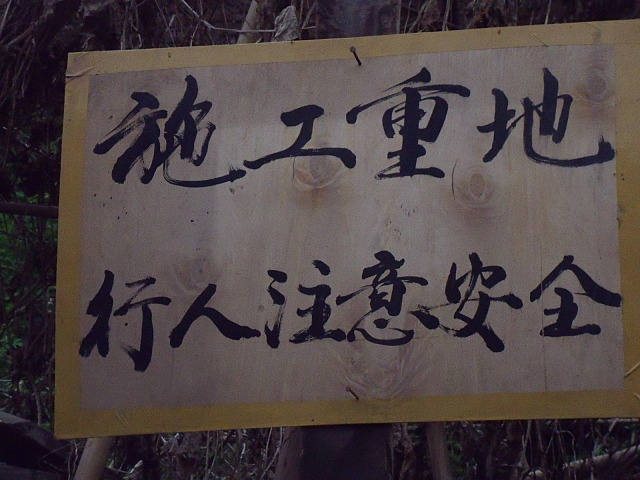 施工重地
行人注意安全